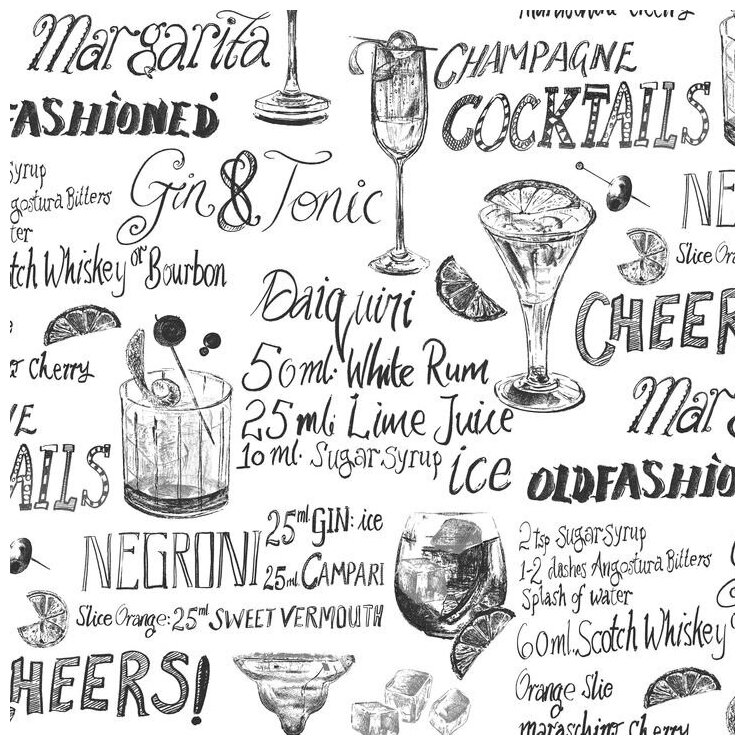 maraschino cherry
Margarita
CHAMPAGNE
COCKTAILS
FASHIONED
Syrup
ngostura Bitters
ter
tch Whiskey or Bourbon
Gin & Tonic
NE
Slice Ora
CHEER
Daiquiri
50ml. White Rum
25ml. Lime Juice
10ml. Sugar Syrup ice
o Cherry
VE
AILS
Mar
OLDFASHIO
NEGRONI
25ml GIN: ice
25ml CAMPARI
Slice Orange: 25ml SWEET VERMOUTH
2 tsp Sugar Syrup
1-2 dashes Angostura Bitters
Splash of water
60ml. Scotch Whiskey
Orange Slie
maraschino Cherry
HEERS!